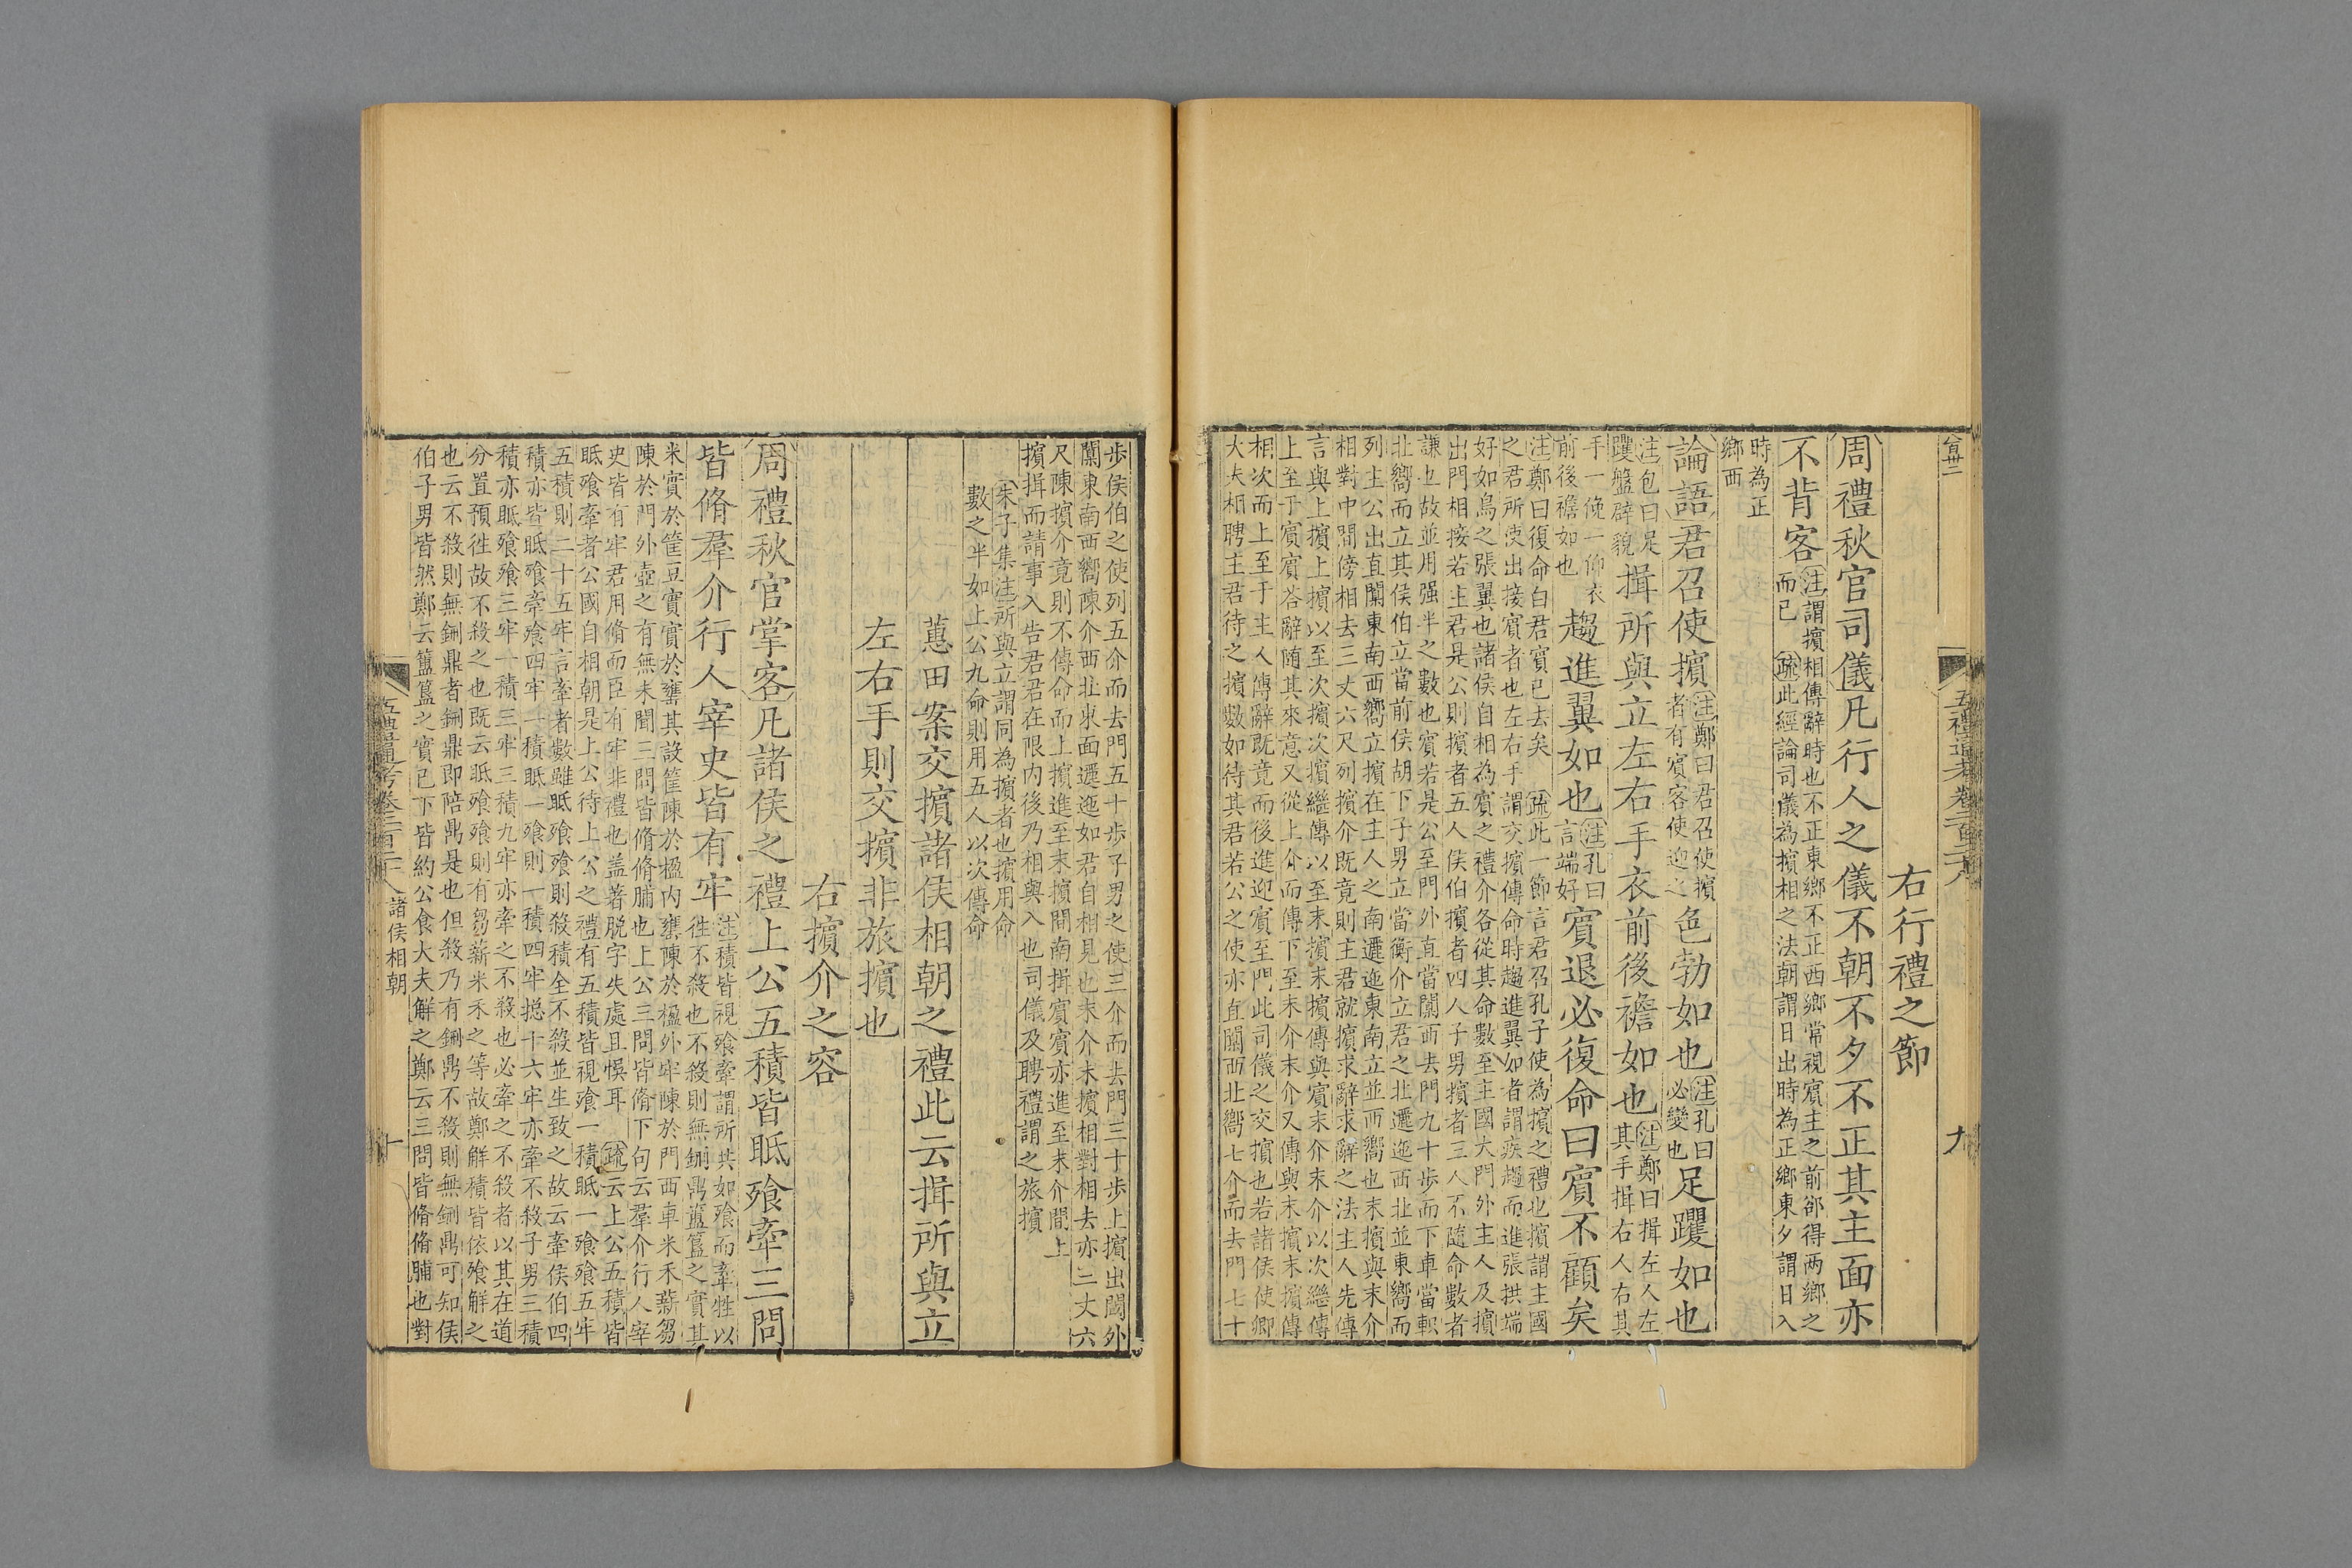 右行禮之節
周禮秋官司儀凡行人之儀不朝不夕不正其主面亦
不背客注謂擯相傳辭時也不正東鄉不正西鄉常視賓主之前郤得兩鄉之而已疏此經論司儀為擯相之法朝謂日出時為正鄉東夕謂日入
時為正鄉西
論語君召使擯注鄭曰君召使擯者有賓客使迎之色勃如也注孔曰必變也足躩如也
注包曰足躩盤辟貌揖所與立左右手衣前後襜如也注鄭曰揖左人左其手揖右人右其
手一俛一仰衣前後襜如也趨進翼如也注孔曰言端好賓退必復命曰賓不顧矣
注鄭曰復命白君賓已去矣疏此一節言君召孔子使為擯之禮也擯謂主國
之君所使出接賓者也左右手謂交擯傳命時趨進翼如者謂疾趨而進張拱端
好如鳥之張翼也諸侯自相為賓之禮介各從其命數至主國大門外主人及擯
出門相接若主君是公則擯者五人侯伯擯者四人子男擯者三人不隨命數者
謙也故並用强半之數也賓若是公至門外直當闑西去門九十步而下車當軹
北嚮而立其侯伯立當前侯胡下子男立當衡介立君之北邐迤西北並東嚮而
列主公出直闑東南西嚮立擯在主人之南邐迤東南立並西嚮也末擯與末介
相對中間傍相去三丈六尺列擯介既竟則主君就擯求辭求辭之法主人先傳
言與上擯上擯以至次擯次擯繼傳以至末擯末擯傳與賓末介末介以次繼傳
上至于賓賓荅辭隨其來意又從上介而傳下至末介末介又傳與末擯末擯傳
相次而上至于主人傳辭既竟而後進迎賓至門此司儀之交擯也若諸侯使卿
大夫相聘主君待之擯數如待其君若公之使亦直闑西北嚮七介而去門七十
五禮通考卷二百二十八
九
步侯伯之使列五介而去門五十步子男之使三介而去門三十步上擯出閾外
闑東南西嚮陳介西北東面邐迤如君自相見也末介末擯相對相去亦三丈六
尺陳擯介竟則不傳命而上擯進至末擯間南揖賓賓亦進至末介間上
擯揖而請事入告君君在限內後乃相與入也司儀及聘禮謂之旅擯
朱子集注所與立謂同為擯者也擯用命
數之半如上公九命則用五人以次傳命
蕙田案交擯諸侯相朝之禮此云揖所與立
左右手則交擯非旅擯也
右擯介之容
周禮秋官掌客凡諸侯之禮上公五積皆眡飱牽三問
皆脩羣介行人宰史皆有牢注積皆視飱牽謂所共如飱而牽牲以往不殺也不殺則無鉶鼎簠簋之實其
米實於筐豆實實於罋其設筐陳於楹內罋陳於楹外牢陳於門西車米禾薪芻
陳於門外壺之有無未聞三問皆脩脩脯也上公三問皆脩下句云羣介行人宰
史皆有牢君用脩而臣有牢非禮也盖著脫字失處且悞耳疏云上公五積皆
眡飱牽者公國自相朝是上公待上公之禮有五積皆視飱一積眡一飱飱五牢
五積則二十五牢言牽者數雖眡飱飱則殺積全不殺並生致之故云牽侯伯四
積亦皆眡飱牽飱四牢一積眡一飱則一積四牢揔十六牢亦牽不殺子男三積
積亦眡飱飱三牢一積三牢三積九牢亦牽之不殺也必牽之不殺者以其在道
分置預徃故不殺之也既云眡飱飱則有芻薪米禾之等故鄭解積皆依飱解之
也云不殺則無鉶鼎者鉶鼎即陪鼎是也但殺乃有鉶鼎不殺則無鉶鼎可知侯
伯子男皆然鄭云簠簋之實已下皆約公食大夫解之鄭云三問皆脩脩脯也對
五禮通考卷二百二十八 諸侯相朝
十